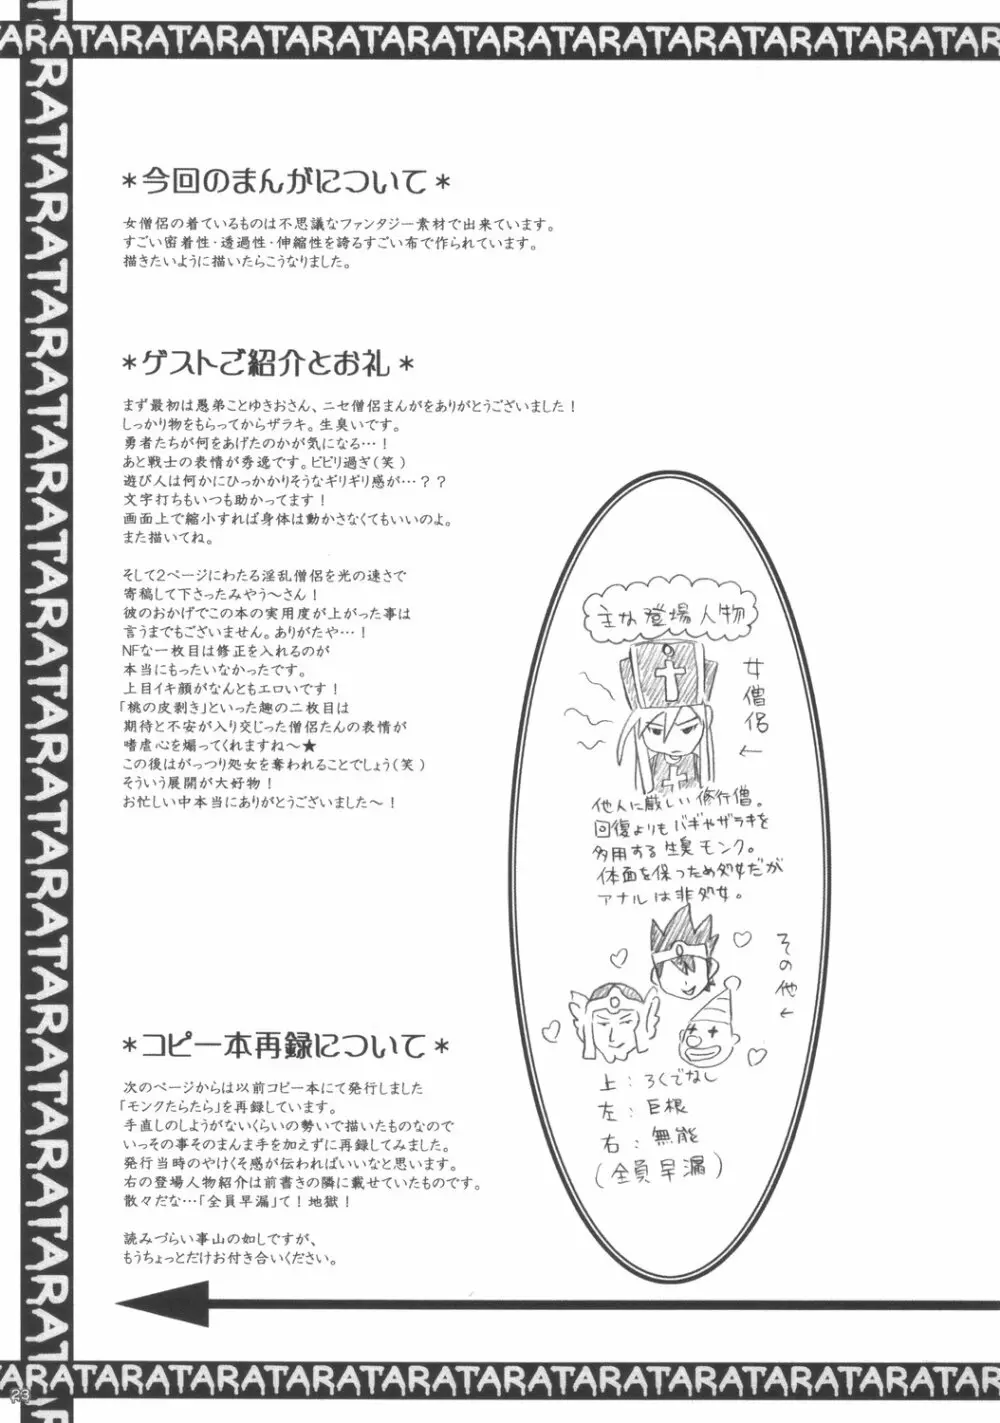 TARATARATARATARATARATARATARATARATARA
TARATARATARATARATARATARATARATARATARA
*今回のまんがについて*
女僧侶の着ているものは不思議なファンタジー素材で出来ています。
すごい密着性・透過性・伸縮性を誇るすごい布で作られています。
描きたいように描いたらこうなりました。
*ゲストご紹介とお礼*
まず最初は愚弟ことゆきおさん、ニセ僧侶まんがをありがとうございました！
しっかり物をもらってからザラキ。生臭いです。
勇者たちが何をあげたのかが気になる…！
あと戦士の表情が秀逸です。ビビり過ぎ（笑）
遊び人は何かにひっかかりそうなギリギリ感が…？？
文字打ちもいつも助かってます！
画面上で縮小すれば身体は動かさなくてもいいのよ。
また描いてね。
そして2ページにわたる淫乱僧侶を光の速さで
寄稿して下さったみやう〜さん！
彼のおかげでこの本の実用度が上がった事は
言うまでもございません。ありがたや…！
NFな一枚目は修正を入れるのが
本当にもったいなかったです。
上目イキ顔がなんともエロいです！
「桃の皮剥き」といった趣の二枚目は
期待と不安が入り交じった僧侶たんの表情が
嗜虐心を煽ってくれますね〜★
この後はがっつり処女を奪われることでしょう（笑）
そういう展開が大好物！
お忙しい中本当にありがとうございました〜！
主な登場人物
女僧侶
←
他人に厳しい修行僧。
回復よりもバギやザラキを
多用する生臭モンク。
体面を保つため処女だが
アナルは非処女。
その他
←
上：ろくでなし
左：巨根
右：無能
（全員早漏）
*コピー本再録について*
次のページからは以前コピー本にて発行しました
「モンクたらたら」を再録しています。
手直しのしようがないくらいの勢いで描いたものなので
いっその事そのまんま手を加えずに再録してみました。
発行当時のやけくそ感が伝わればいいなと思います。
右の登場人物紹介は前書きの隣に載せていたものです。
散々だな…「全員早漏」て！地獄！
読みづらい事山の如しですが、
もうちょっとだけお付き合いください。
TARATARATARATARATARATARATARATARATARA
23